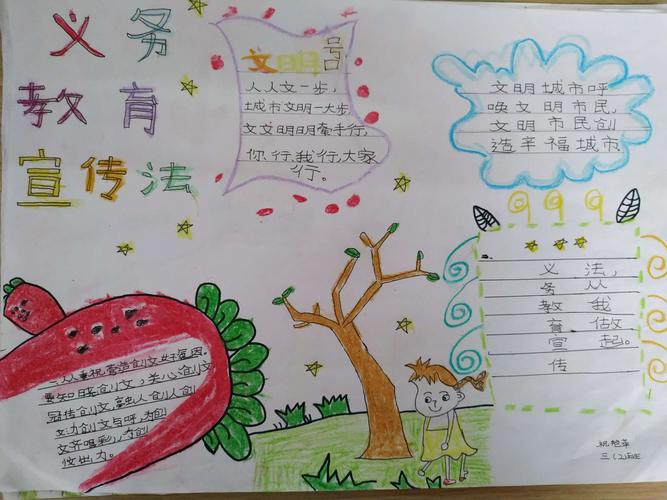 义务
教育
宣传法
文明号口
人人文一步，
城市文明一大步
文文明明牵手行，
你行，我行，大家
行。
文明城市呼
唤文明市民，
文明市民创
造辛福城市
义 法，
务 从
教 我
育 做
宣 起。
传
营造创文好氛围。
创文，关心创文
创文，人创人创
文力创文与呼，为创
文齐喝彩，为创
出力。
三（2）班